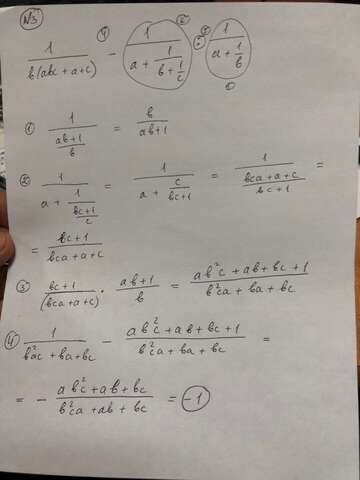 №3
1/(b(abc + a+c)) ④ - 1/(a + 1/(b + 1/c)) ② : ③ 1/(a + 1/b) ①
① 1/((ab+1)/b) = b/(ab+1)
② 1/(a + 1/((bc+1)/c)) = 1/(a + c/(bc+1)) = 1/((bca+a+c)/(bc+1)) =
= (bc+1)/(bca+a+c)
③ (bc+1)/(bca+a+c) · (ab+1)/b = (ab²c+ab+bc+1)/(b²ca+ba+bc)
④ 1/(b²ac+ba+bc) - (ab²c+ab+bc+1)/(b²ca+ba+bc) =
= - (ab²c+ab+bc)/(b²ca+ab+bc) = -1